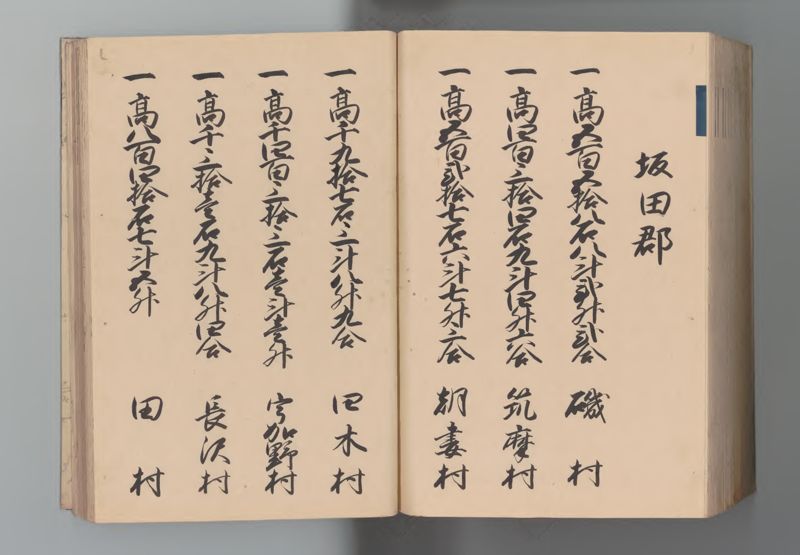 坂田郡
一高五百五拾八石八斗弐升弐合 磯村
一高四百三拾四石九斗四升六合 筑摩村
一高五百弐拾七石六斗七升三合 朝妻村
一高千九拾七石三斗八升九合 田木村
一高千四百三拾三石壱斗壱升 宇加野村
一高千三拾壱石九斗八升四合 長沢村
一高八百四拾石七斗五升 田村